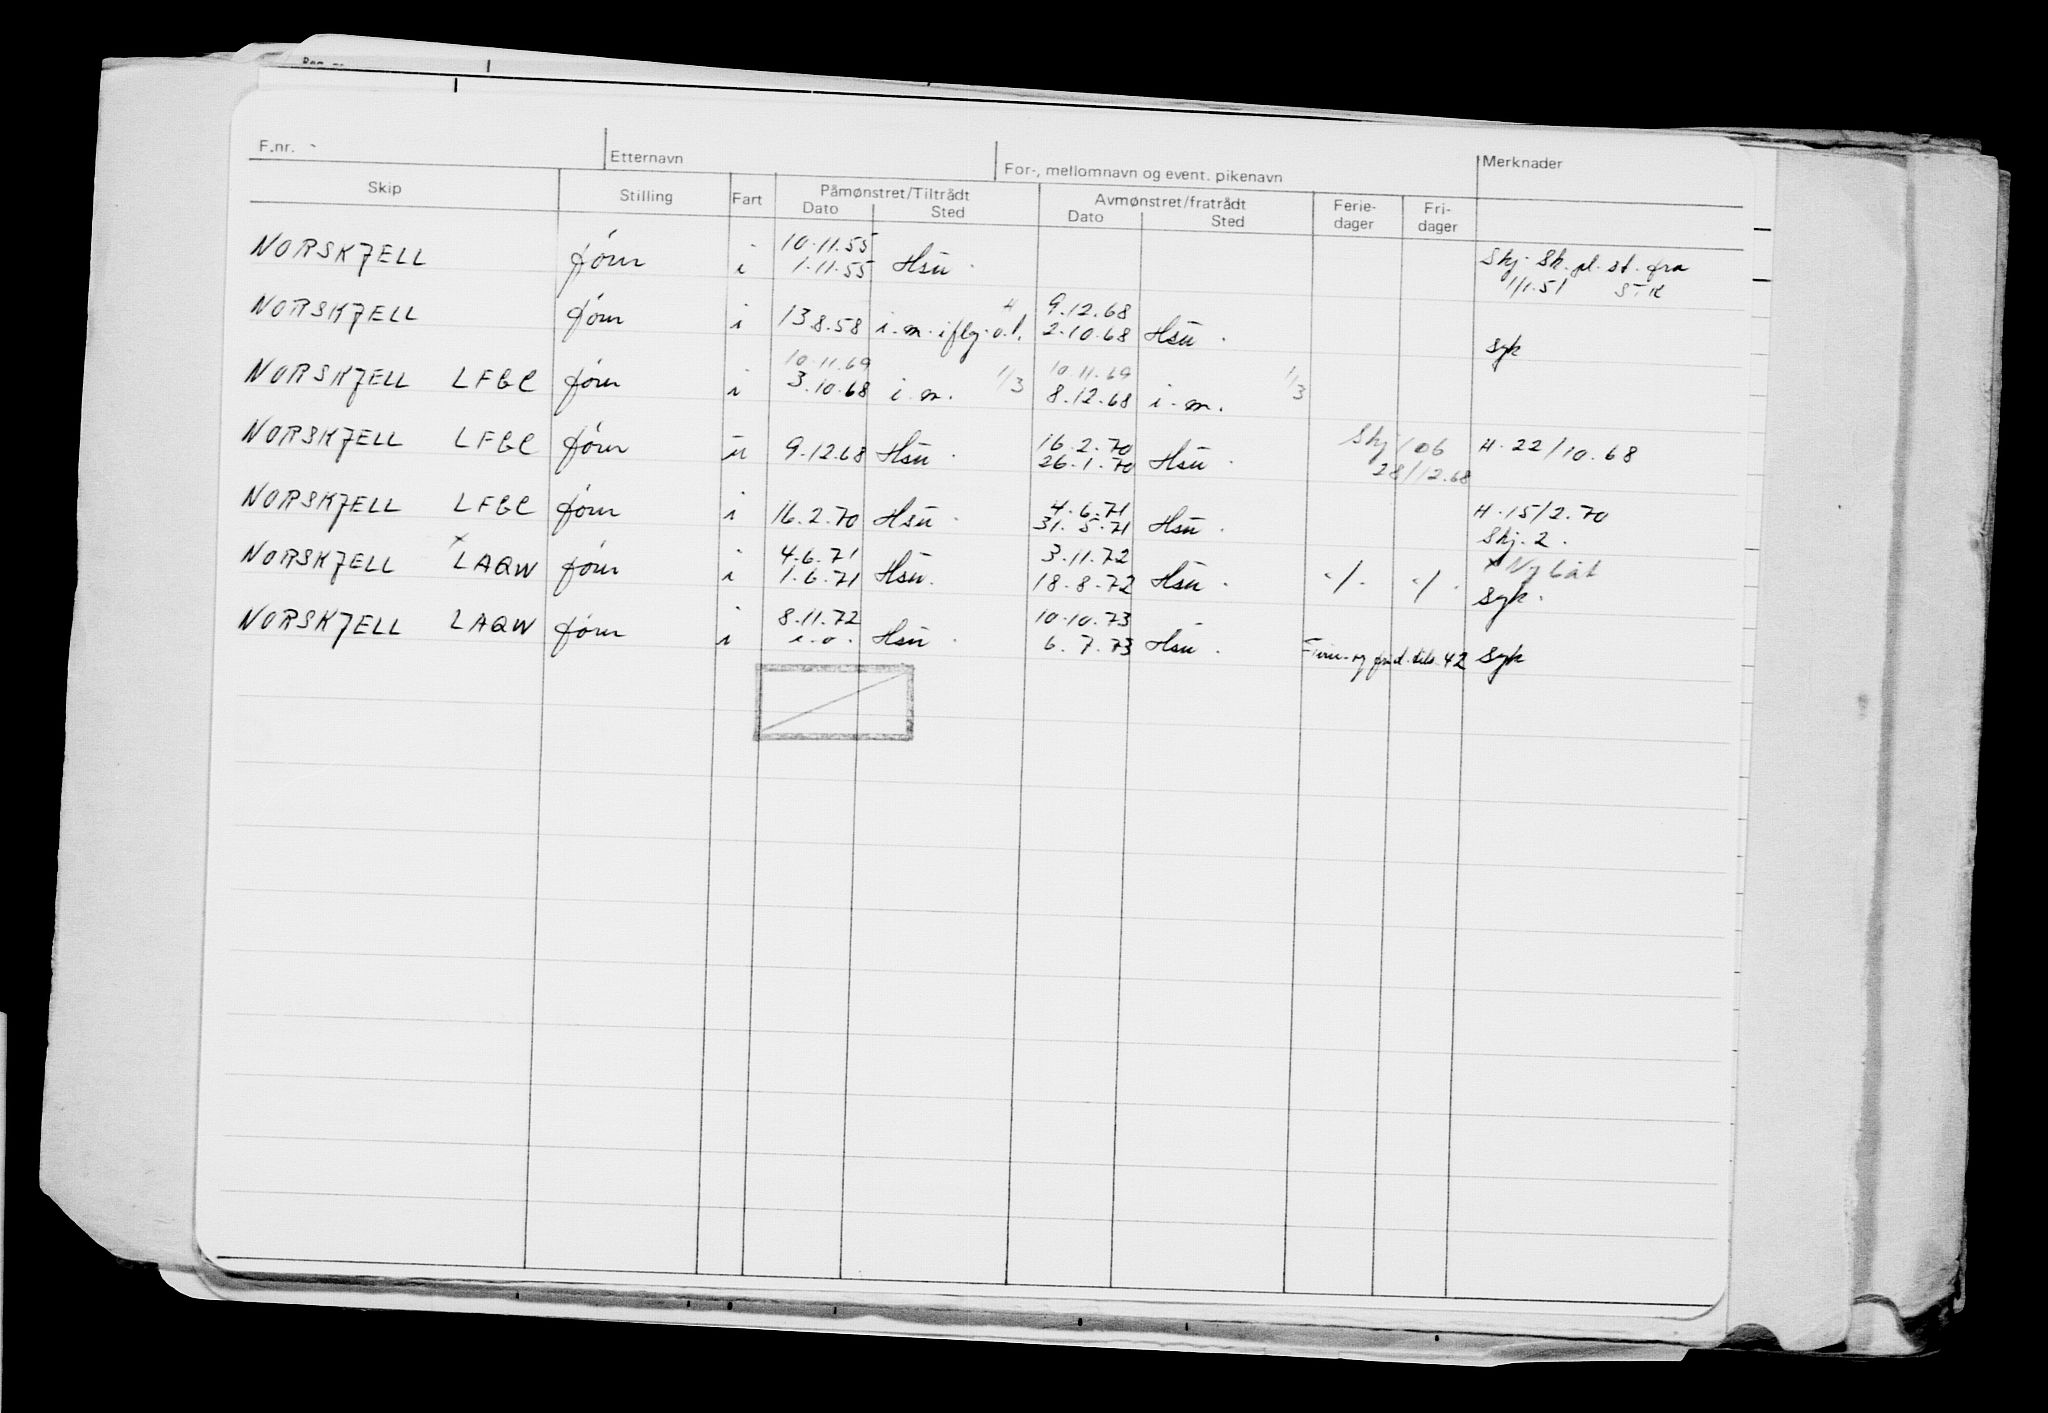 F.nr. Etternavn For-, mellomnavn og event. pikenavn Merknader
Skip Stilling Fart Påmønstret/Tiltrådt Avmønstret/fratrådt Ferie- Fri-
Dato Sted Dato Sted dager dager
10.11.55
NORSKJELL i 1.11.55 Hsu. Skj. Sk. pl. st. fra
1/1.51 STK
4 9.12.68
NORSKJELL i 13 8.58 i.m. iflg. o.l. 2.10.68 Hsu. syk
10.11.69 10.11.69
NORSKJELL LFGC i 3.10.68 i.m. 1/3 8.12.68 i.m. 1/3
16.2.70 Skj 106
NORSKJELL LFGC u 9.12.68 Hsu. 26.1.70 Hsu. 28/12.68 H. 22/10.68
4.6.71
NORSKJELL LFGC i 16.2.70 Hsu. 31.5.71 Hsu. H. 15/2.70
Skj. 2.
4.6.71 3.11.72 x Ny båt
NORSKJELL x LAQW i 1.6.71 Hsu. 18.8.72 Hsu. ./. ./. syk.
8.11.72 10.10.73
NORSKJELL LAQW i i.o. Hsu. 6.7.73 Hsu. 42 syk